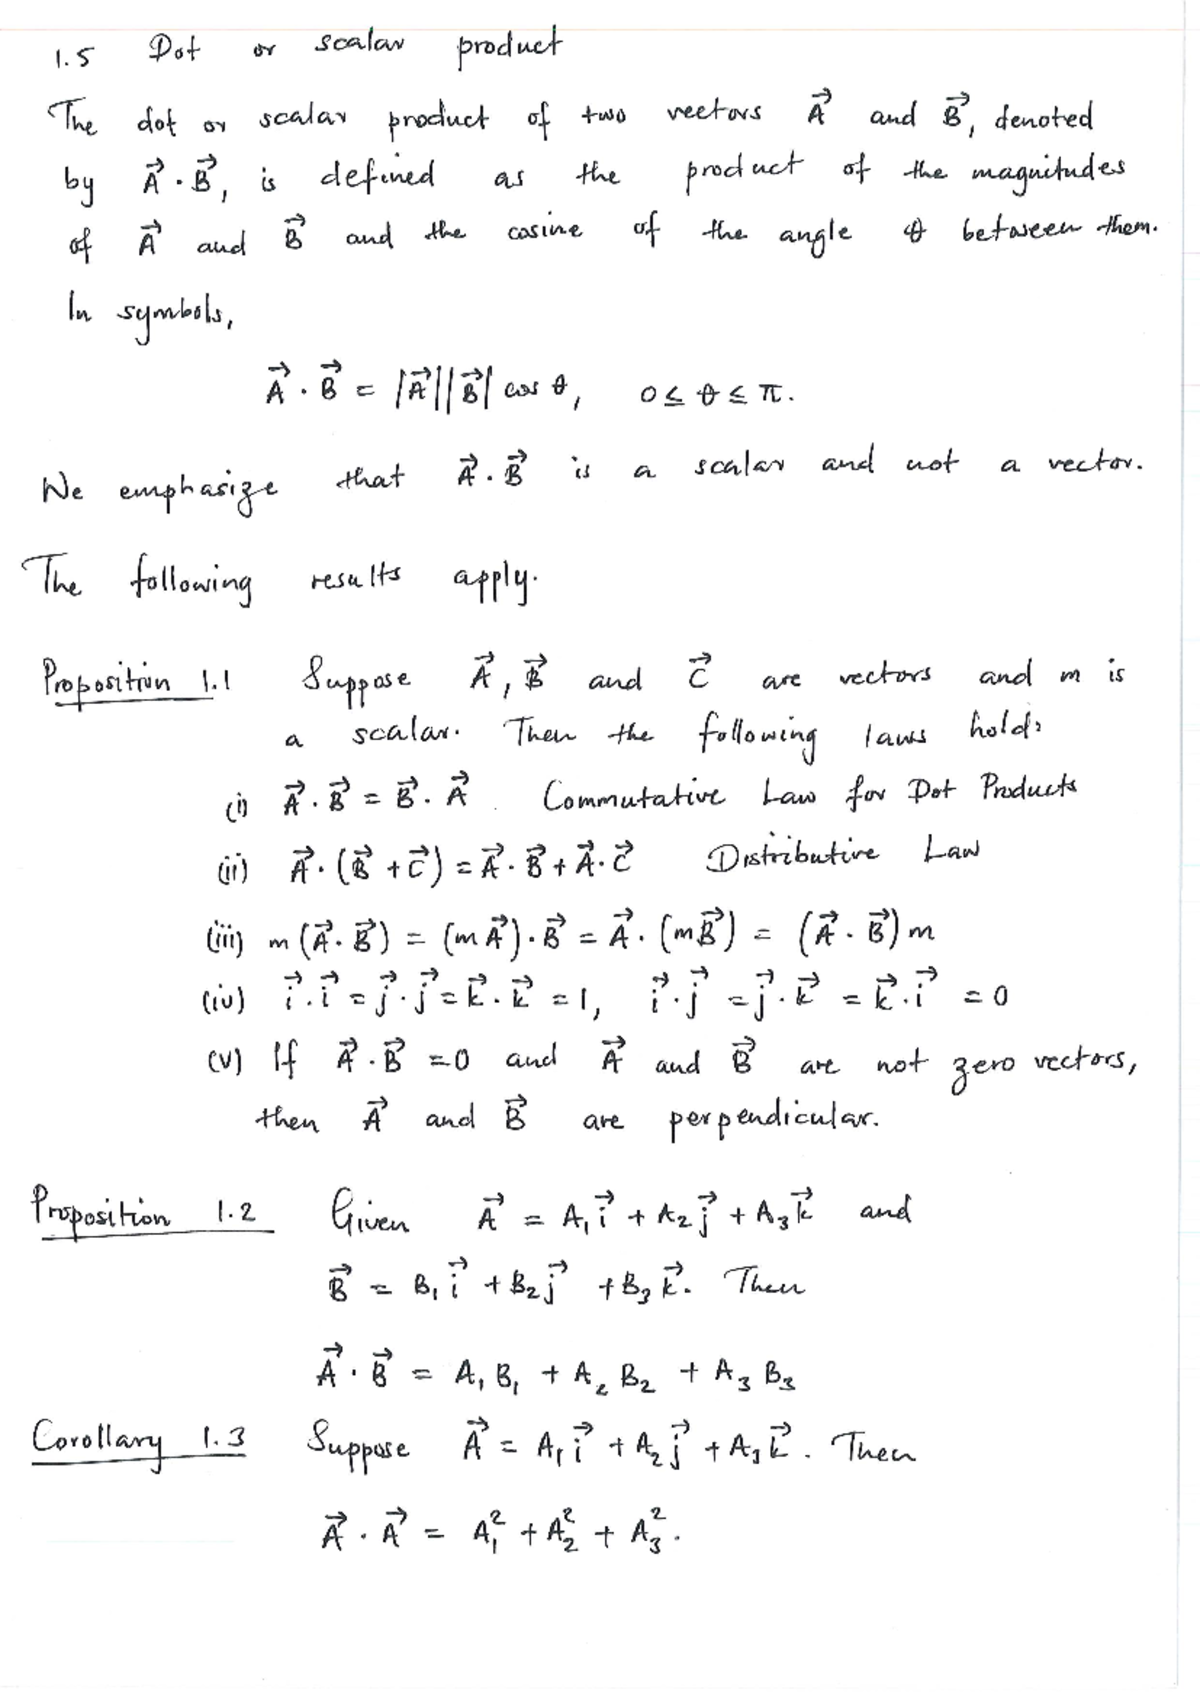 1.5 Dot or scalar product
The dot or scalar product of two vectors A⃗ and B⃗, denoted
by A⃗ · B⃗, is defined as the product of the magnitudes
of A⃗ and B⃗ and the cosine of the angle θ between them.
In symbols,
A⃗ · B⃗ = |A⃗||B⃗| cos θ, 0 ≤ θ ≤ π.
We emphasize that A⃗ · B⃗ is a scalar and not a vector.
The following results apply.
Proposition 1.1 Suppose A⃗, B⃗ and C⃗ are vectors and m is
a scalar. Then the following laws hold:
(i) A⃗ · B⃗ = B⃗ · A⃗. Commutative Law for Dot Products
(ii) A⃗ · (B⃗ + C⃗) = A⃗ · B⃗ + A⃗ · C⃗ Distributive Law
(iii) m(A⃗ · B⃗) = (mA⃗) · B⃗ = A⃗ · (mB⃗) = (A⃗ · B⃗)m
(iv) i⃗ · i⃗ = j⃗ · j⃗ = k⃗ · k⃗ = 1, i⃗ · j⃗ = j⃗ · k⃗ = k⃗ · i⃗ = 0
(v) If A⃗ · B⃗ = 0 and A⃗ and B⃗ are not zero vectors,
then A⃗ and B⃗ are perpendicular.
Proposition 1.2 Given A⃗ = A₁i⃗ + A₂j⃗ + A₃k⃗ and
B⃗ = B₁i⃗ + B₂j⃗ + B₃k⃗. Then
A⃗ · B⃗ = A₁B₁ + A₂B₂ + A₃B₃
Corollary 1.3 Suppose A⃗ = A₁i⃗ + A₂j⃗ + A₃k⃗. Then
A⃗ · A⃗ = A₁² + A₂² + A₃².